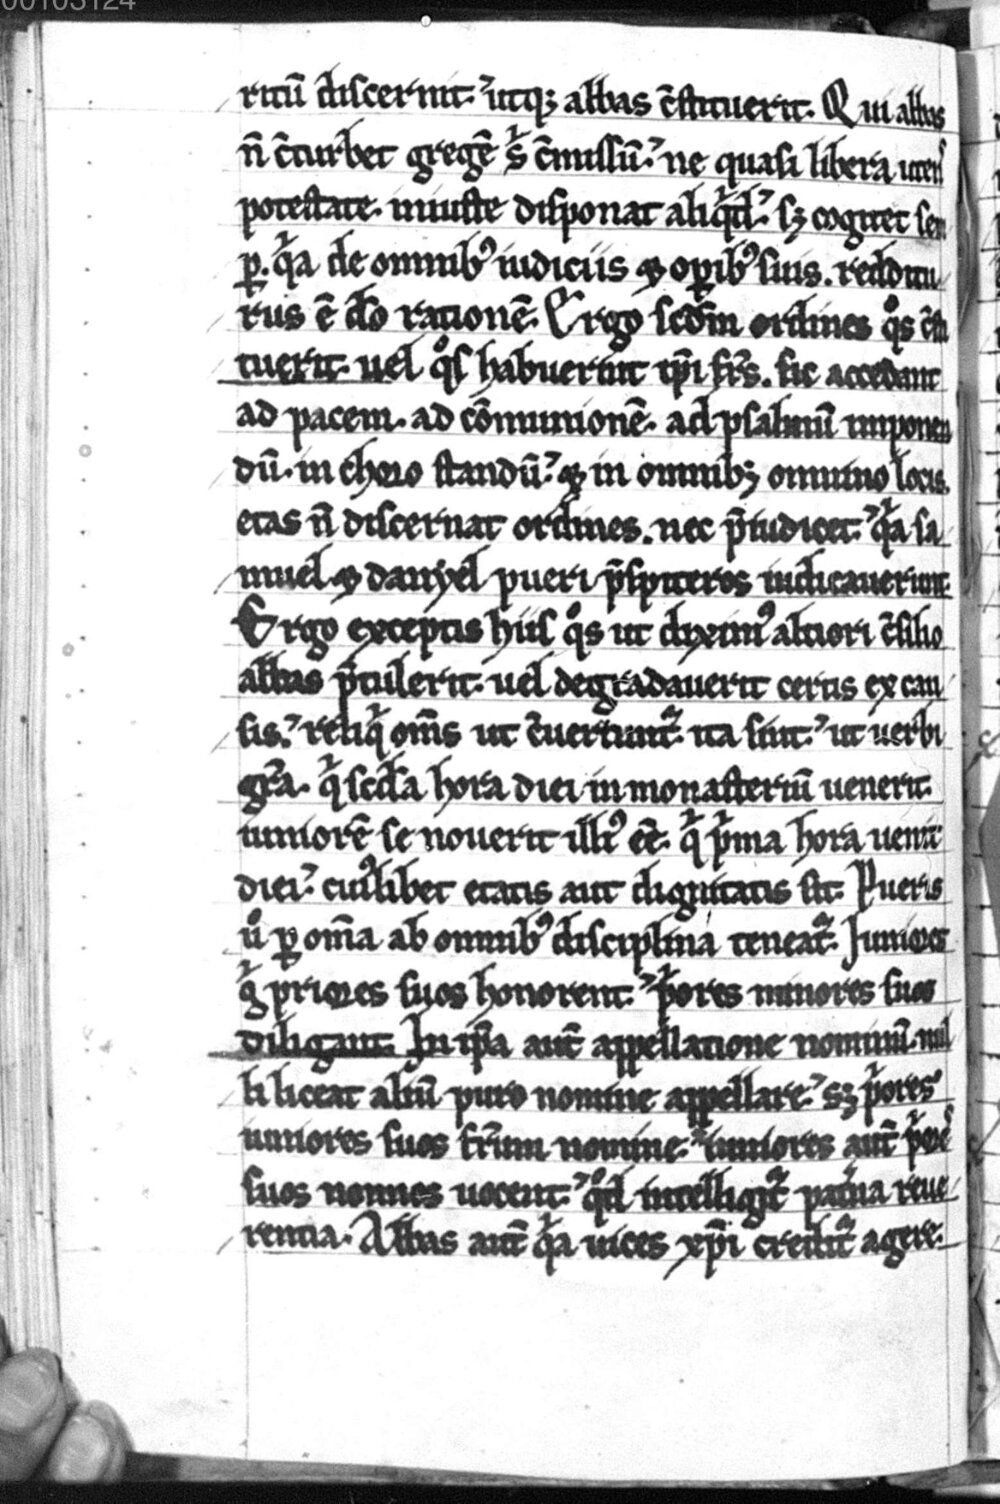 00103124
ritũ discernit. utqꝫ abbas c̃stituerit. Qui abbas
ñ c̃turbet gregẽ sͥ c̃missũ. ne quasi libera utens
potestate. iniuste disponat aliqͥd. sꝫ cogitet sem
ꝑ. qͥa de omnibꝰ iudiciis ⁊ oꝑibꝰ suis. redditu
rus ẽ d̃o rationẽ. Ergo scd̃m ordines qͦs c̃sti
tuerit. uel qͦs habuerint ip̃i fr̃s. sic accedant
ad pacem. ad cõmunionẽ. ad psalmũ imponen
dũ. in choro standũ. ⁊ in omnibꝫ omnino locis.
etas ñ discernat ordines. nec p̃iudicet. qͥa sa
muel ⁊ danyel pueri p̃sbiteros iudicauerunt.
Ergo exceptis hiis qͦs ut diximꝰ altiori c̃silio
abbas p̃tulerit. uel degradauerit certis ex cau
sis. reliqͥ om̃s ut c̃uertunt᷑. ita sint. ut uerbi
gr̃a. qͥ scd̃a hora diei in monasteriũ uenerit.
iuniorẽ se nouerit illiꝰ ẽẽ. qͥ pͥma hora uenit
diei. cuiꝰlibet etatis aut dignitatis sit. Pueris
uͦ ꝑ om̃ia ab omnibꝰ disciplina teneat᷑. Juniores
gͥ priores suos honorent. pͥores minores suos
diligant. In ip̃a aut̃ appellatione nominũ. nul
li liceat aliũ puro nomine appellare. sꝫ pͥores
iuniores suos fr̃um nomine. iuniores aut̃ pͥores
suos nonnos uocent. qͦd intelligit᷑ pat̃na reue
rentia. Abbas aut̃ qͥa uices xp̃i credit᷑ agere.